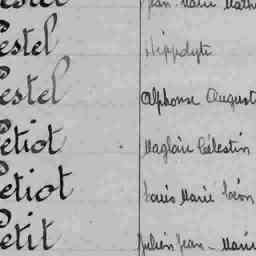 Jean Marie Math
estel Hippolyte
estel Alphonse August
etiot Magloire Célestin
etiot Louis Marie Léon
etit Julien Jean-Marie